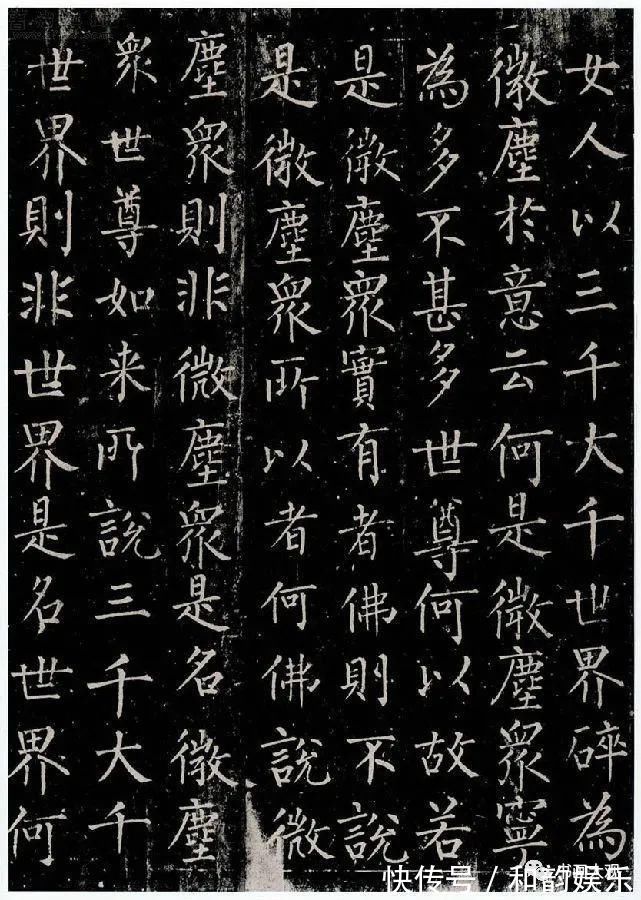 女人以三千大千世界碎為
微塵於意云何是微塵眾寧
為多不甚多世尊何以故若
是微塵眾實有者佛則不說
是微塵眾所以者何佛說微
塵眾則非微塵眾是名微塵
眾世尊如来所說三千大千
世界則非世界是名世界何
快传号/和韵娱乐